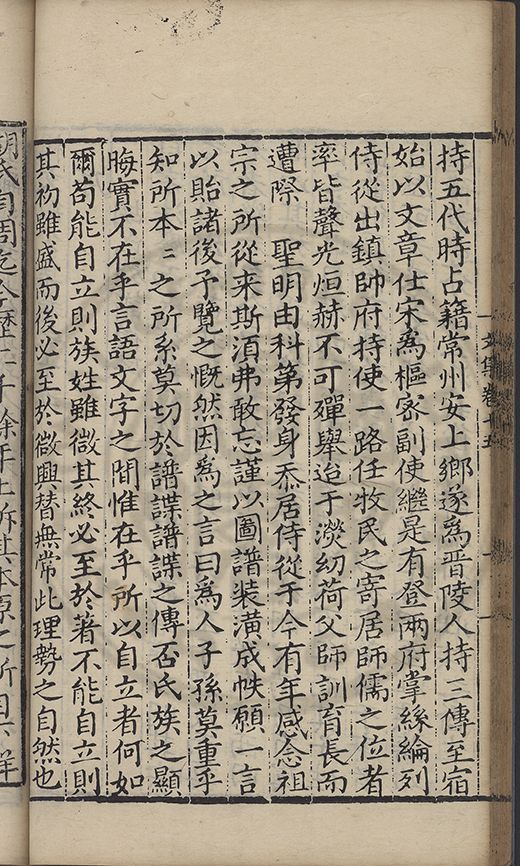 文集卷十五
持五代時占籍常州安上鄉遂為晋陵人持三傳至宿
始以文章仕宋為樞密副使繼是有登兩府掌絲綸列
侍從出鎮帥府持使一路任牧民之寄居師儒之位者
率皆聲光烜赫不可殫舉迨于濙幼荷父師訓育長而
遭際 聖明由科第發身忝居侍從于今有年感念祖
宗之所從来斯湏弗敢忘謹以圖譜装潢成帙願一言
以貽諸後予覽之慨然因為之言曰為人子孫莫重乎
知所本〻之所系莫切於譜諜譜諜之傳否氏族之顯
晦實不在乎言語文字之間惟在乎所以自立者何如
爾苟能自立則族姓雖微其終必至於著不能自立則
其初雖盛而後必至於微興替無常此理勢之自然也
胡氏自周迄今歷二千餘年上泝其本原之所自